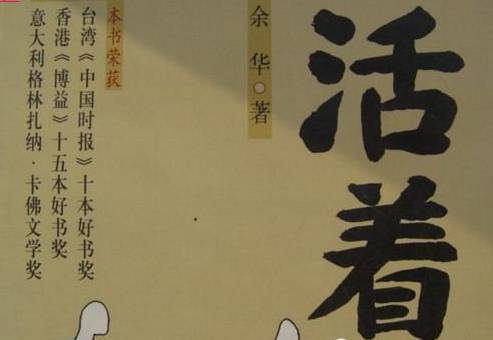 活着
余华○著
本书荣获
台湾《中国时报》十本好书奖
香港《博益》十五本好书奖
意大利格林扎纳·卡佛文学奖